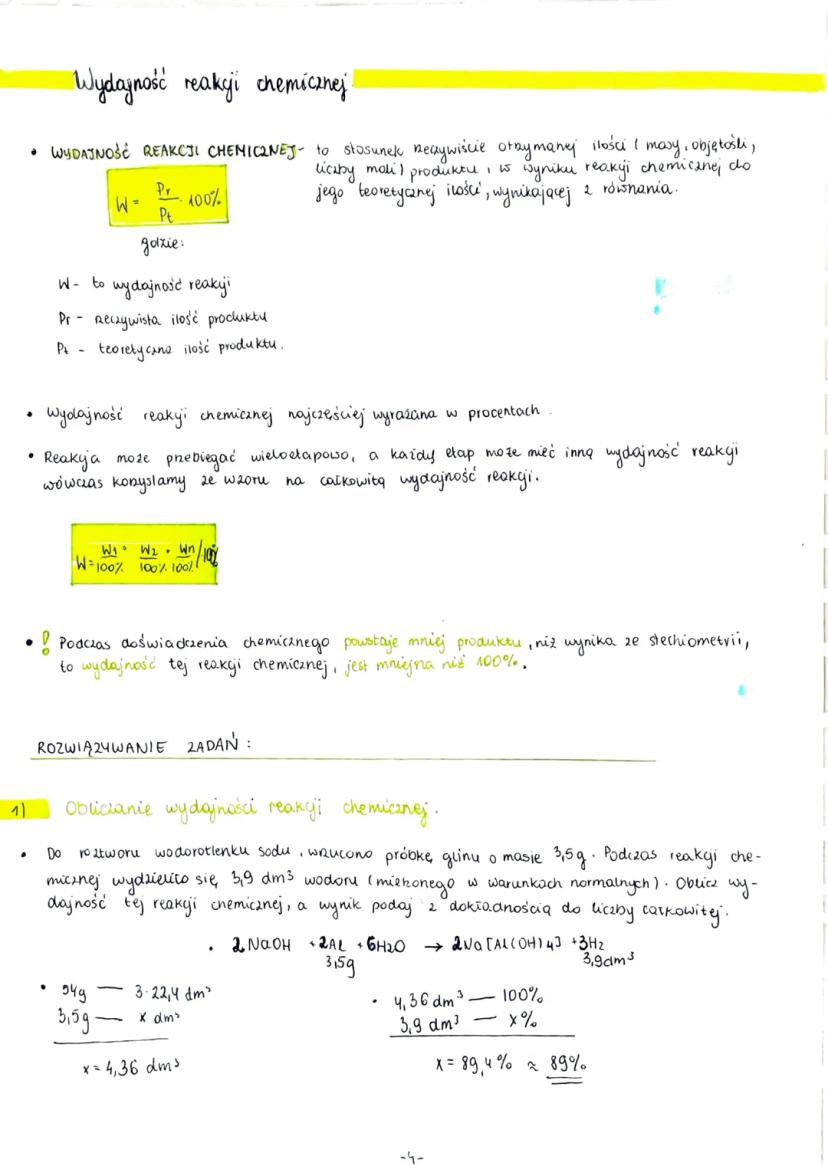 Wydajność reakcji chemicznej
• WYDAJNOŚĆ REAKCJI CHEMICZNEJ- to stosunek rzeczywiście otrzymanej ilości ( masy, objętości,
liczby moli) produktu, w wyniku reakcji chemicznej do
jego teoretycznej ilości, wynikającej z równania.
W = Pr/Pt · 100%
gdzie:
W - to wydajność reakcji
Pr - rzeczywista ilość produktu
Pt - teoretyczna ilość produktu.
• Wydajność reakcji chemicznej najczęściej wyrażana w procentach.
• Reakcja może przebiegać wieloetapowo, a każdy etap może mieć inną wydajność reakcji
wówczas korzystamy ze wzoru na całkowitą wydajność reakcji.
W = W1/100% · W2/100% · Wn/100% /·100%
• ! Podczas doświadczenia chemicznego powstaje mniej produktu, niż wynika ze stechiometrii,
to wydajność tej reakcji chemicznej, jest mniejsza niż 100%.
ROZWIĄZYWANIE ZADAŃ :
1) Obliczanie wydajności reakcji chemicznej.
• Do roztworu wodorotlenku sodu, wrzucono próbkę glinu o masie 3,5g. Podczas reakcji che-
micznej wydzieliło się 3,9 dm³ wodoru (mierzonego w warunkach normalnych). Oblicz wy-
dajność tej reakcji chemicznej, a wynik podaj z dokładnością do liczby całkowitej.
• 2NaOH +2Al +6H2O → 2Na[Al(OH)4] +3H2
3,5g 3,9dm³
• 54g — 3·22,4 dm³
3,5g — x dm³
x = 4,36 dm³
• 4,36 dm³ — 100%
3,9 dm³ — x%
x = 89,4% ≈ 89%
-4-